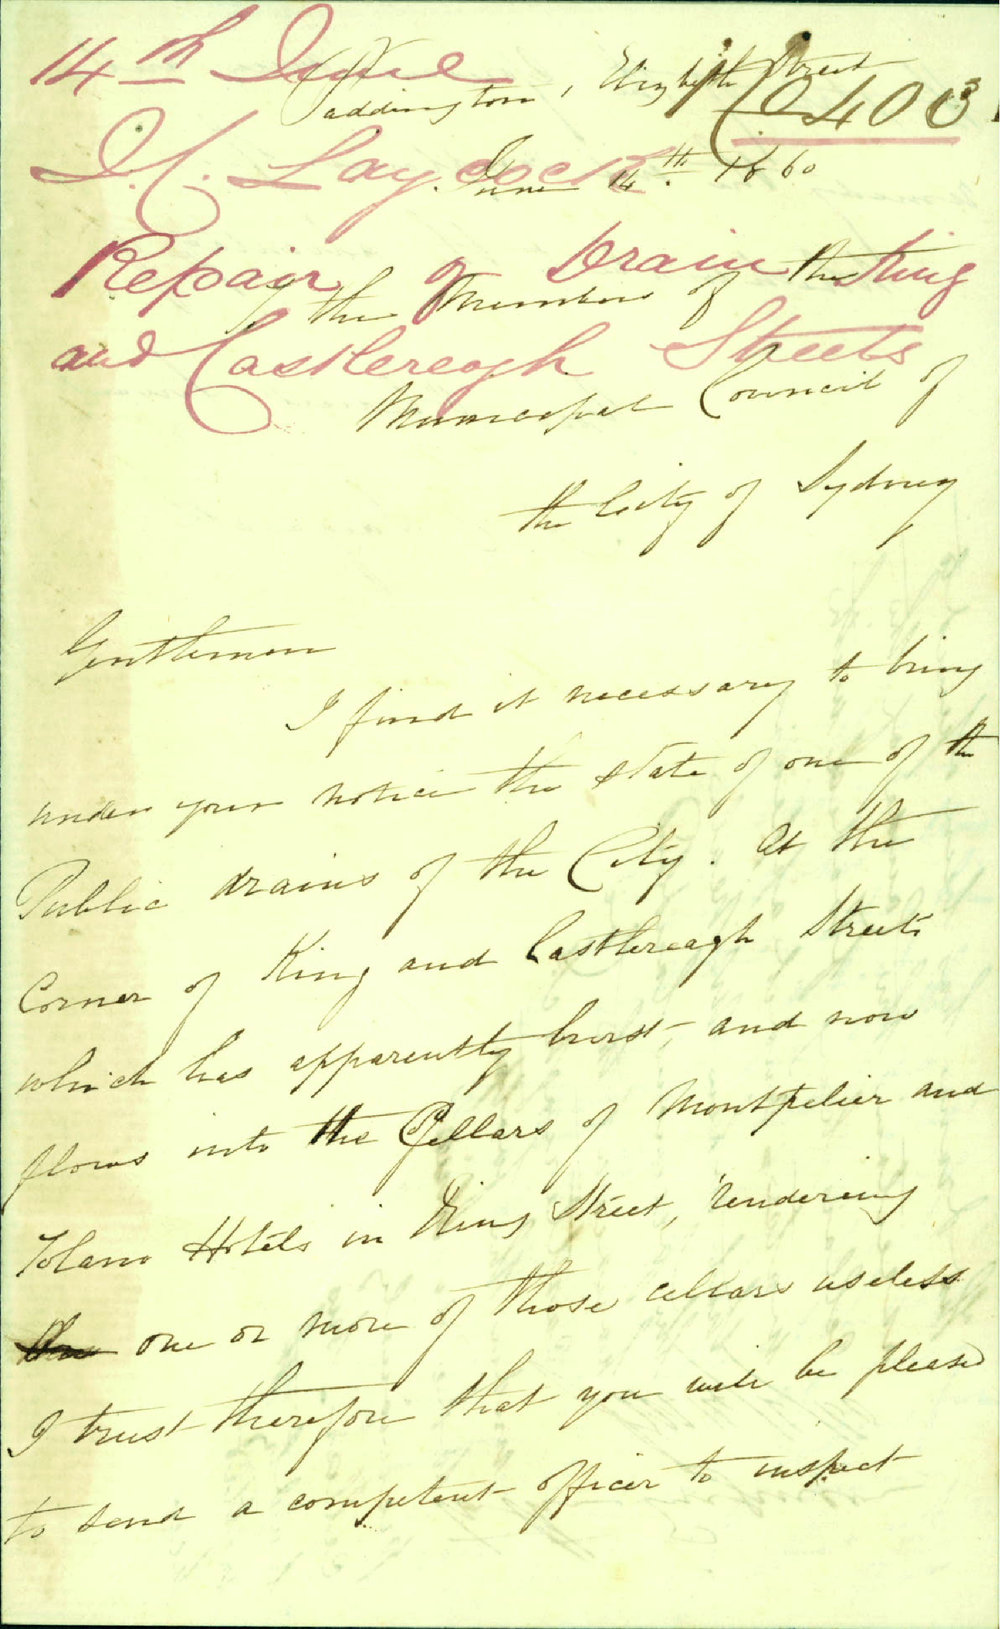 14th June
Paddington, Elizabeth Street
403
J. C. Laycock
June 14th. 1860
Repair of Drain King
To the Members of the
and Castlereagh Streets
Municipal Council of
the City of Sydney
Gentlemen
I find it necessary to bring
under your notice the state of one of the
Public drains of the City. At the
Corner of King and Castlereagh Streets
which has apparently burst, and now
flows into the Cellars of Montpelier and
Tolano Hotels in King Street, rendering
one or more of those cellars useless
I trust therefore that you will be pleased
to send a competent officer to inspect